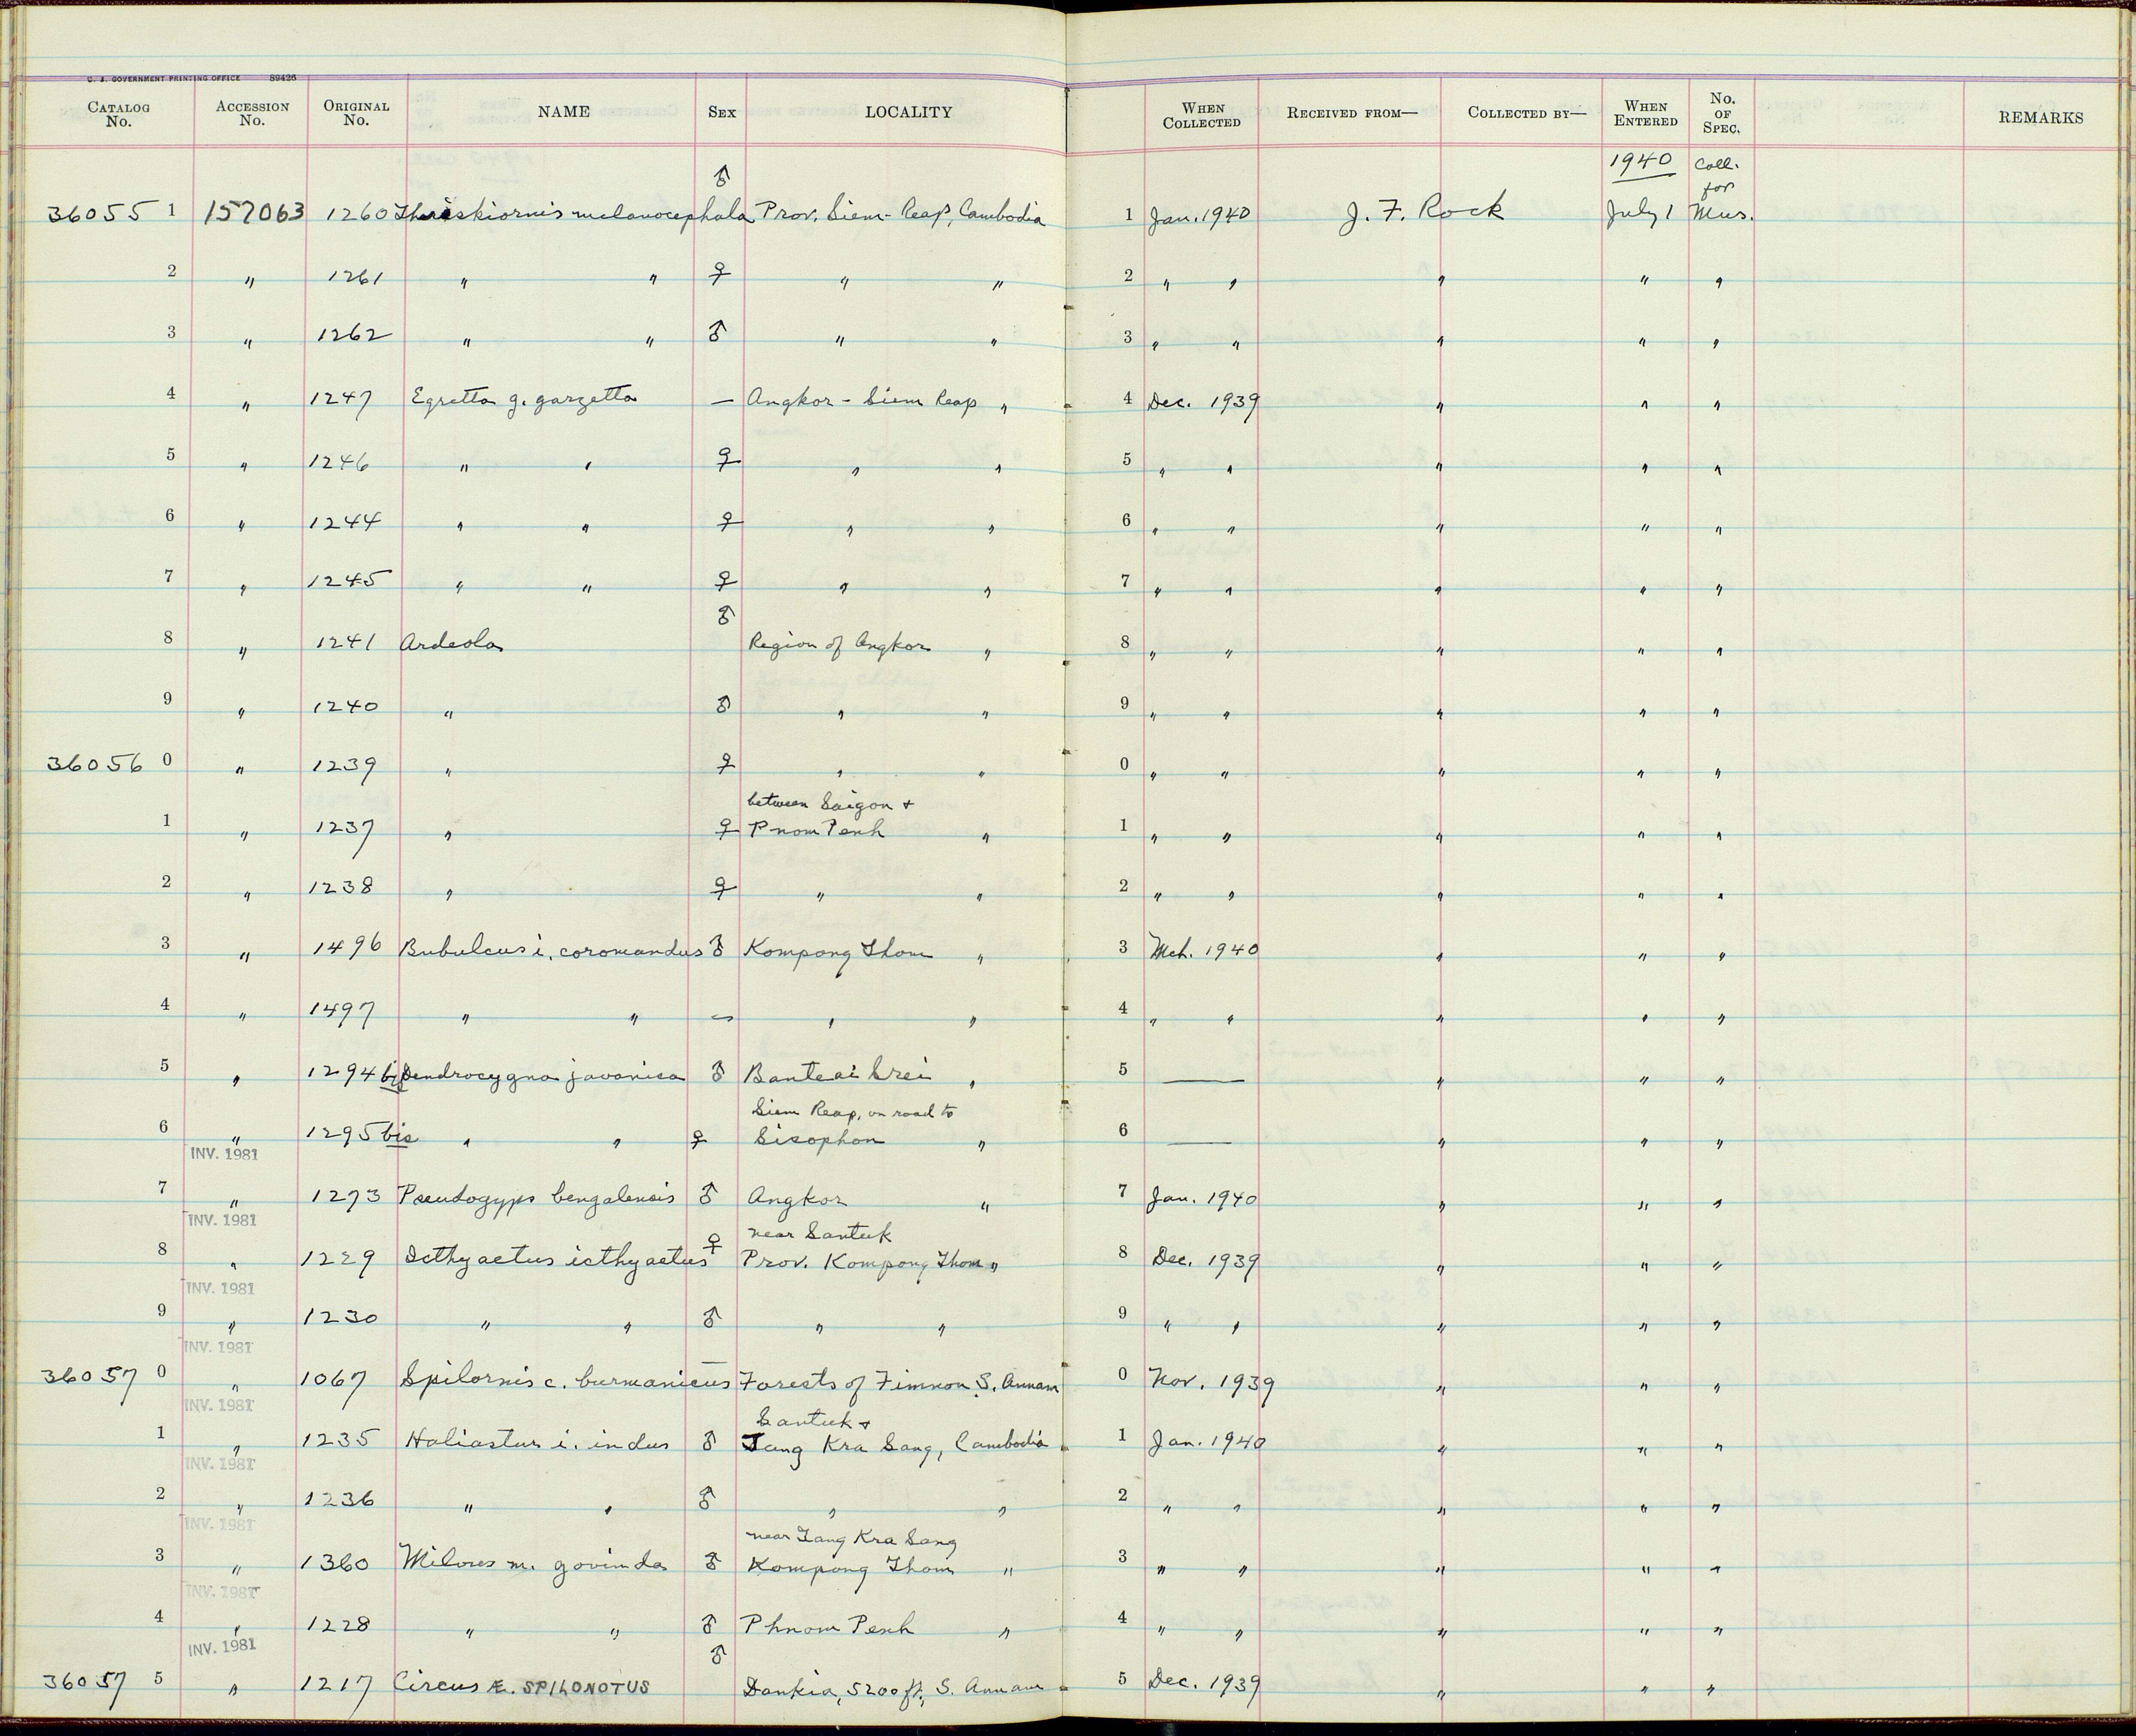 U. S. GOVERNMENT PRINTING OFFICE 89426
CATALOG No. ACCESSION No. ORIGINAL No. NAME SEX LOCALITY WHEN COLLECTED RECEIVED FROM— COLLECTED BY— WHEN ENTERED No. OF SPEC. REMARKS
♂ 1940 Coll. for
36055 1 157063 1260 Threskiornis melanocephala Prov. Siem-Reap, Cambodia 1 Jan. 1940 J. F. Rock July 1 Mus.
2 " 1261 " " ♀ " " 2 " " " " "
3 " 1262 " " ♂ " " 3 " " " " "
4 " 1247 Egretta g. garzetta — Angkor - Siem Reap " 4 Dec. 1939 " " "
5 " 1246 " " ♀ " " 5 " " " " "
6 " 1244 " " ♀ " " 6 " " " " "
7 " 1245 " " ♀ " " 7 " " " " "
8 " 1241 Ardeola ♂ Region of Angkor " 8 " " " " "
9 " 1240 " ♂ " " 9 " " " " "
36056 0 " 1239 " ♀ " " 0 " " " " "
between Saigon +
1 " 1237 " ♀ Pnom Penh " 1 " " " " "
2 " 1238 " ♀ " " 2 " " " " "
3 " 1496 Bubulcus i. coromandus ♂ Kompong Thom " 3 Mch. 1940 " " "
4 " 1497 " " — " " 4 " " " " "
5 " 1294 bis Dendrocygna javanica ♂ Banteai Srei " 5 — " " "
Siem Reap, on road to
6 " 1295 bis " " ♀ Sisophon " 6 — " " "
INV. 1981
7 " 1273 Pseudogyps bengalensis ♂ Angkor " 7 Jan. 1940 " " "
INV. 1981
near Santuk
8 " 1229 Icthyaetus icthyaetus ♀ Prov. Kompong Thom " 8 Dec. 1939 " " "
INV. 1981
9 " 1230 " " ♂ " " 9 " " " " "
INV. 1981
36057 0 " 1067 Spilornis c. burmanicus — Forests of Fimnon S. Annam 0 Nov. 1939 " " "
INV. 1981
Santuk +
1 " 1235 Haliastur i. indus ♂ Tang Kra Sang, Cambodia 1 Jan. 1940 " " "
INV. 1981
2 " 1236 " " ♂ " " 2 " " " " "
INV. 1981
near Tang Kra Sang
3 " 1360 Milvus m. govinda ♂ Kompong Thom " 3 " " " " "
INV. 1981
4 " 1228 " " ♂ Phnom Penh " 4 " " " " "
INV. 1981
36057 5 " 1217 Circus Æ. SPILONOTUS ♂ Dankia, 5200 ft, S. Annam 5 Dec. 1939 " " "